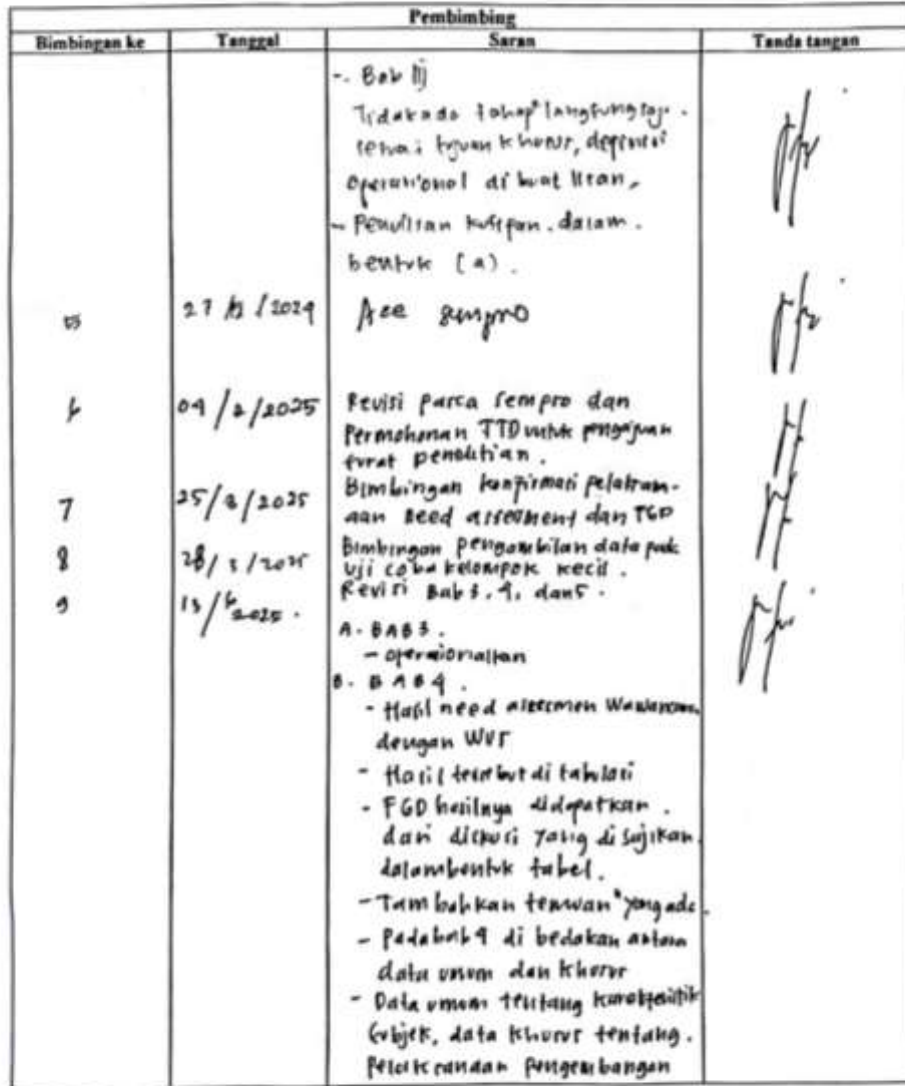 Pembimbing
Bimbingan ke Tanggal Saran Tanda tangan
-. Bab III
Tidak ada tahap" langsung saja.
sesuai tujuan khusus, definisi
operasional di buat
- Penulisan kutipan. dalam.
bentuk (a).
5 27 / 2024 Acc sempro
6 04/2/2025 Revisi pasca sempro dan
Permohonan TTD untuk pengajuan
surat penelitian.
7 25/2/2025 Bimbingan konfirmasi pelaksan-
aan need assesment dan FGD
8 28/5/2025 Bimbingan pengambilan data pada
uji coba kelompok kecil.
9 13/6 2025. Revisi Bab 3, 4, dan 5.
A. BAB 3.
- operasionalkan
B. BAB 4.
- Hasil need assesmen wawancara
dengan WUS
- Hasil tersebut di tabulasi
- FGD hasilnya didapatkan.
dari diskusi yang di sajikan
dalam bentuk tabel.
- Tambahkan temuan" yang ada.
- Pada bab 4 di bedakan antara
data umum dan khusus
- Data umum tentang karakteristik
subjek, data khusus tentang.
pengembangan